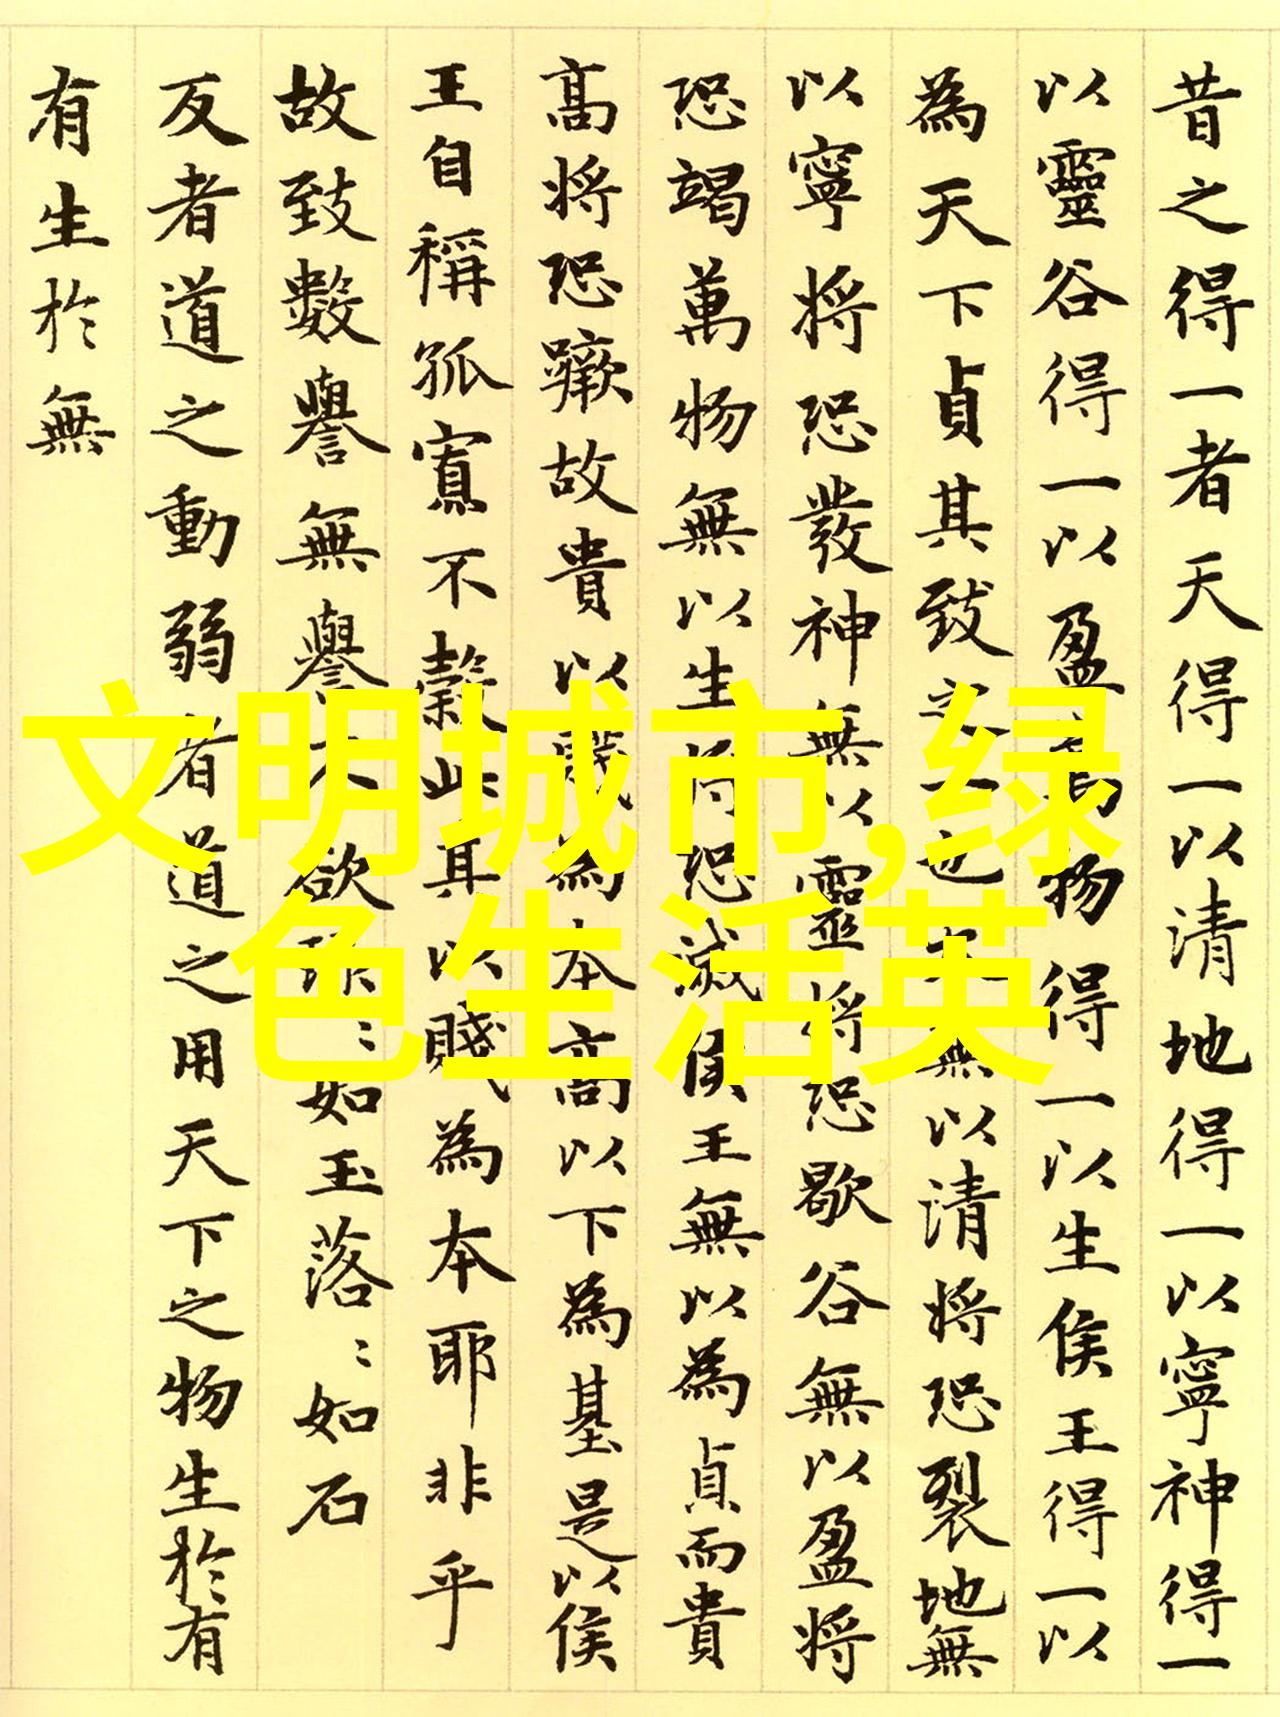 昔之得一者天得一以清地得一以寧神得一
以靈谷得一以盈萬物得一以生侯王得一以
為天下貞其致之一也天無以清將恐裂地無
以寧將恐發神無以靈將恐歇谷無以盈將
恐竭萬物無以生將恐滅侯王無以為貞而貴
高將恐蹶故貴以賤為本高以下為基是以侯
王自稱孤寡不穀此其以賤為本耶非乎
故致數譽無譽不欲琭〻如玉落〻如石
反者道之動弱者道之用天下之物生於有
有生於無
文明城市,绿
色生活英